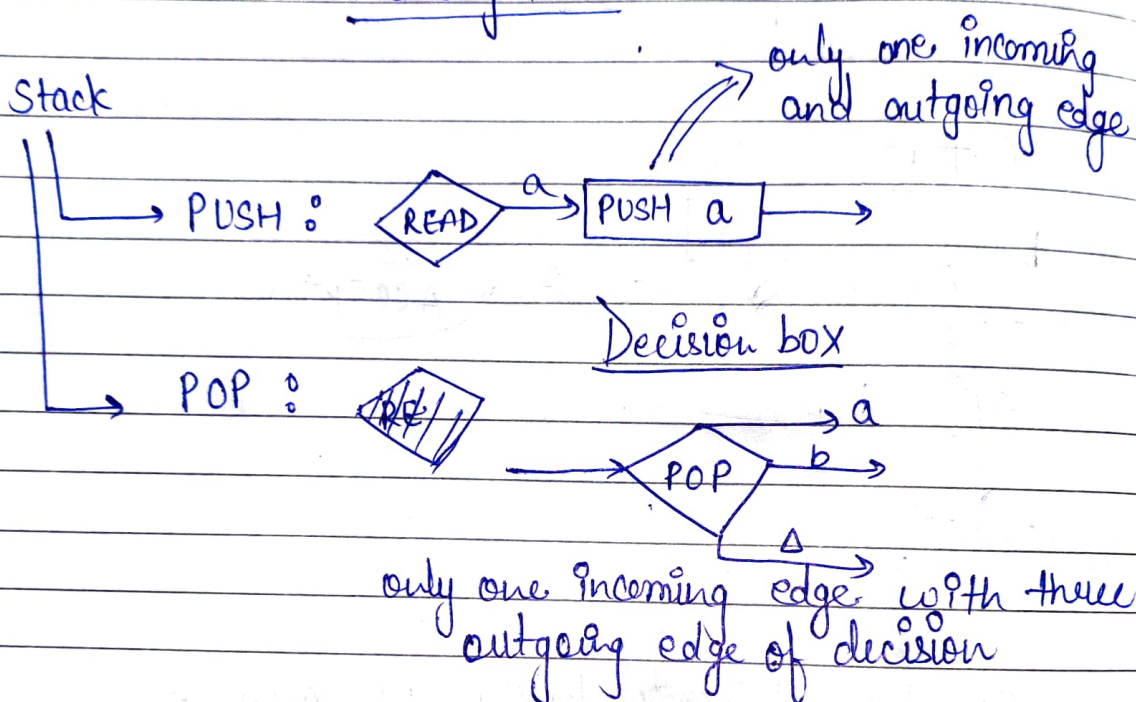 only one incoming
and outgoing edge
Stack
PUSH : READ a PUSH a
Decision box
POP :
a
b
POP
Δ
only one incoming edge with three
outgoing edge of decision